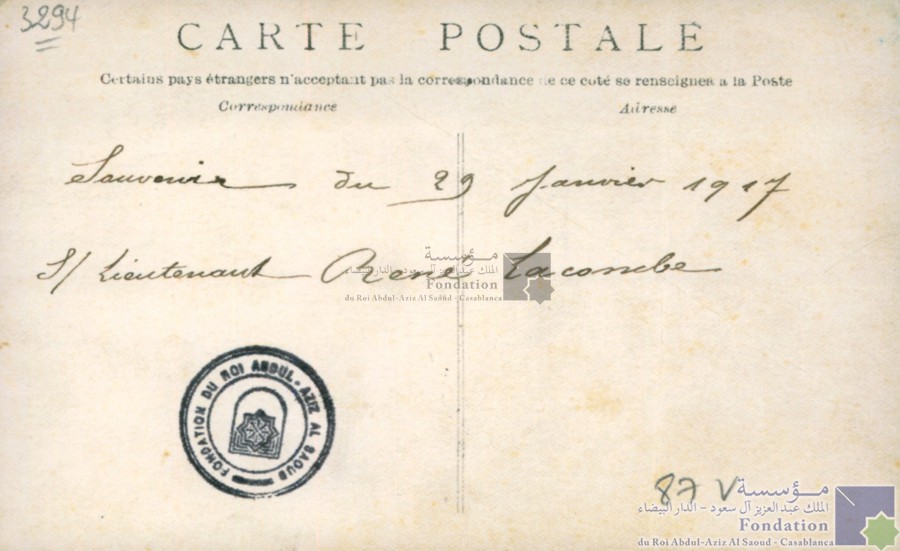 3294
CARTE POSTALE
Certains pays étrangers n'acceptant pas la correspondance de ce coté se renseigner a la Poste
Correspondance
Adresse
Souvenir du 29 Janvier 1917
S/ Lieutenant René Lacombe
مؤسسة
الملك عبد العزيز آل سعود - الدار البيضاء
Fondation
du Roi Abdul-Aziz Al Saoud - Casablanca
FONDATION DU ROI ABDUL-AZIZ AL SAOUD
87 V
مؤسسة
الملك عبد العزيز آل سعود - الدار البيضاء
Fondation
du Roi Abdul-Aziz Al Saoud - Casablanca